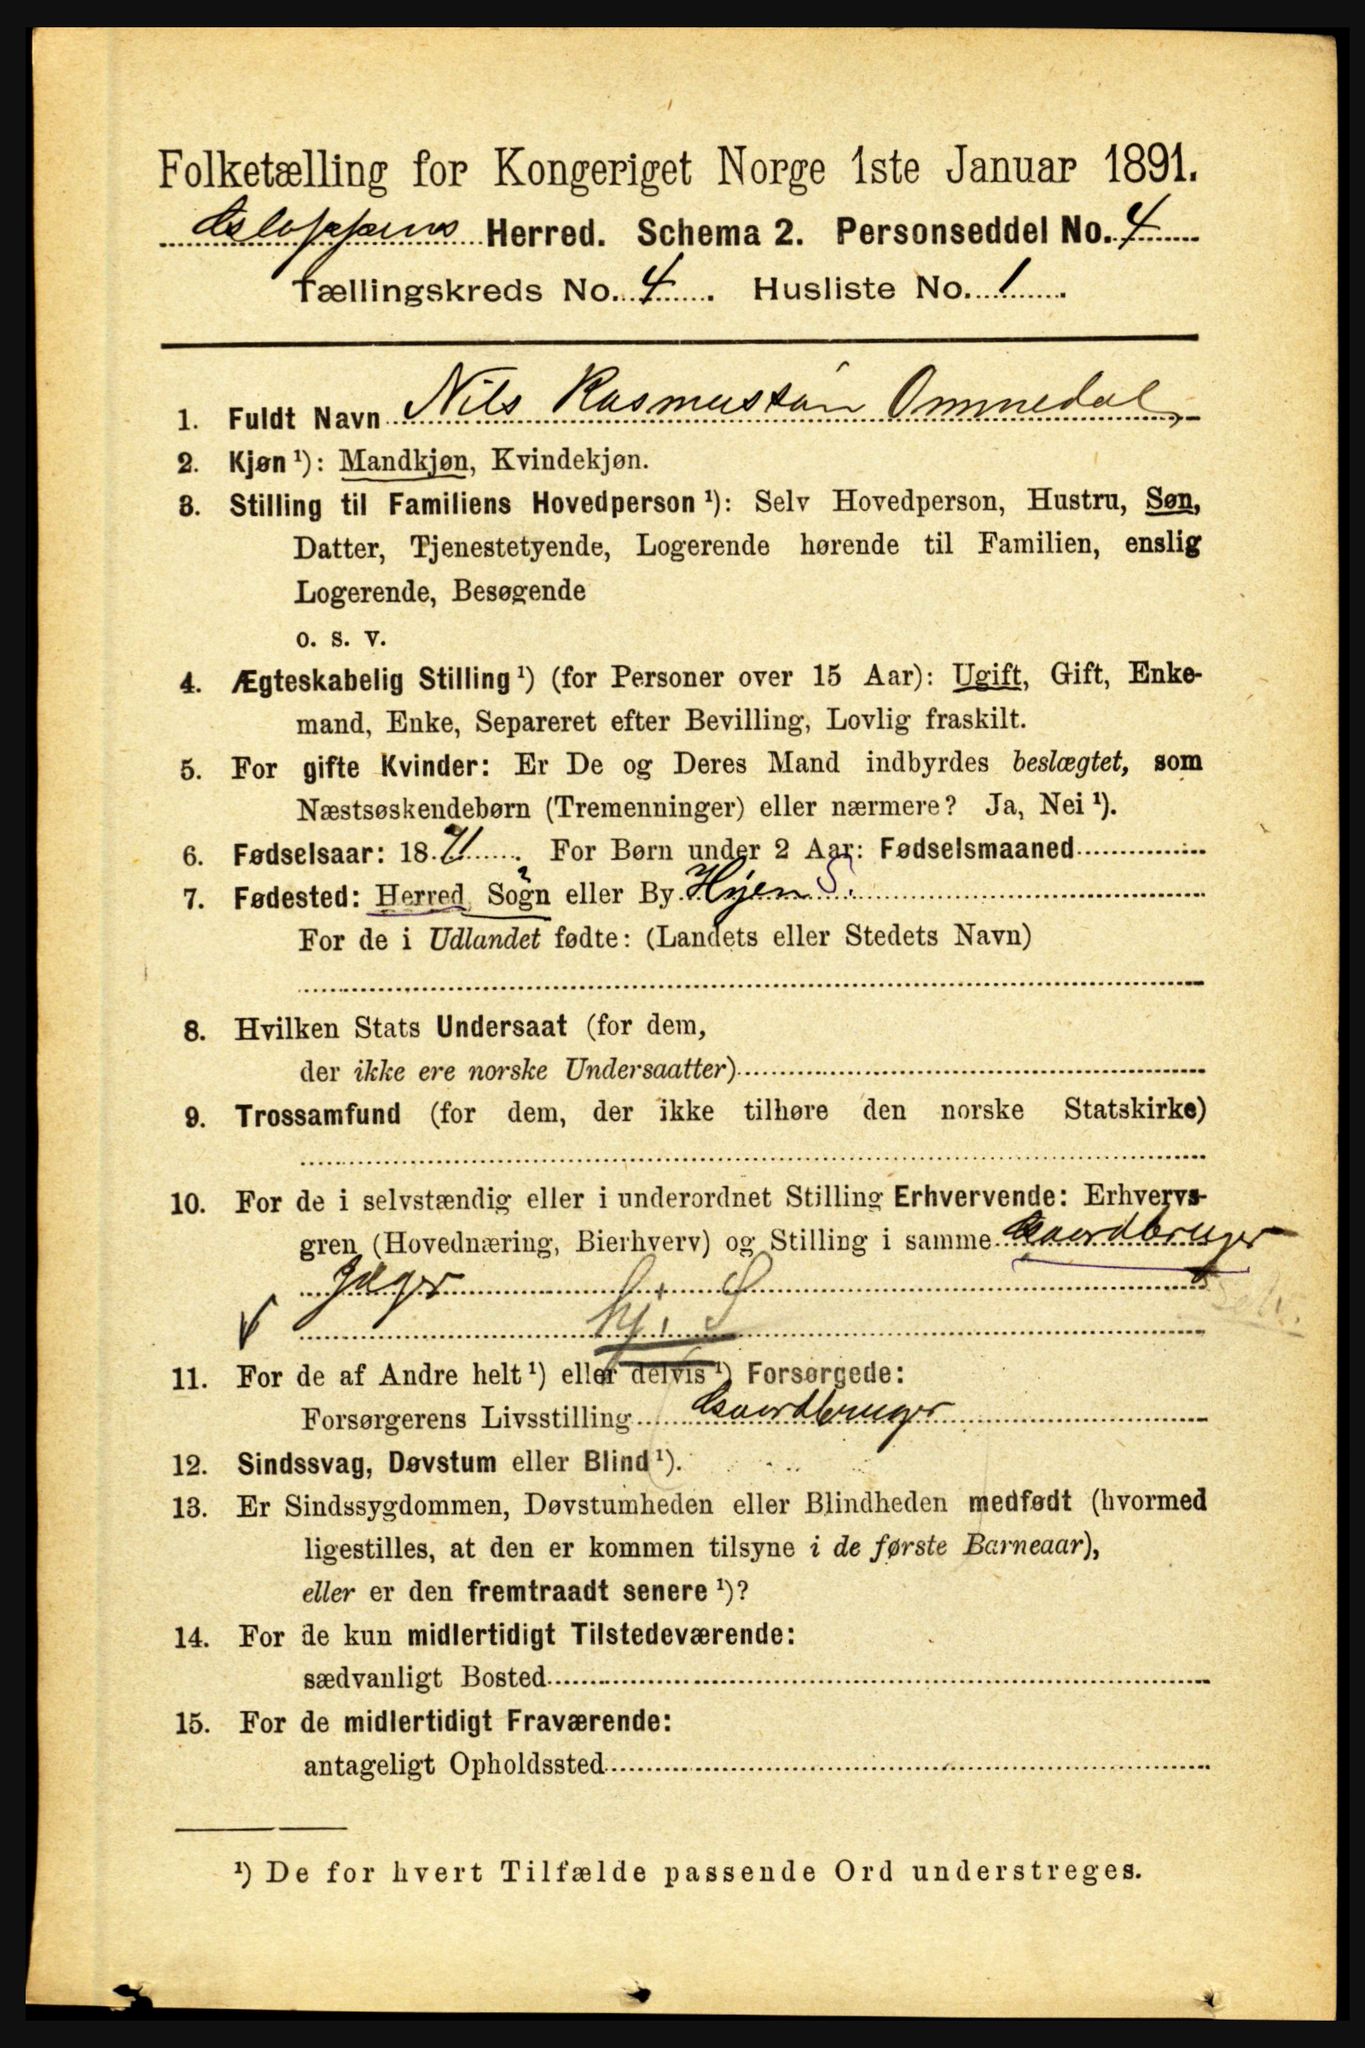 Folketælling for Kongeriget Norge 1ste Januar 1891.
Gloppens Herred. Schema 2. Personseddel No. 4
Tællingskreds No. 4. Husliste No. 1.
1. Fuldt Navn Nils Rasmussøn Ommedal,
2. Kjøn ¹): Mandkjøn, Kvindekjøn.
3. Stilling til Familiens Hovedperson ¹): Selv Hovedperson, Hustru, Søn,
Datter, Tjenestetyende, Logerende hørende til Familien, enslig
Logerende, Besøgende
o. s. v.
4. Ægteskabelig Stilling ¹) (for Personer over 15 Aar): Ugift, Gift, Enke-
mand, Enke, Separeret efter Bevilling, Lovlig fraskilt.
5. For gifte Kvinder: Er De og Deres Mand indbyrdes beslægtet, som
Næstsøskendebørn (Tremenninger) eller nærmere? Ja, Nei ¹).
6. Fødselsaar: 1871. For Børn under 2 Aar: Fødselsmaaned
7. Fødested: Herred, Sogn eller By Hyen S.
For de i Udlandet fødte: (Landets eller Stedets Navn)
8. Hvilken Stats Undersaat (for dem,
der ikke ere norske Undersaatter)
9. Trossamfund (for dem, der ikke tilhøre den norske Statskirke)
10. For de i selvstændig eller i underordnet Stilling Erhvervende: Erhvervs-
gren (Hovednæring, Bierhverv) og Stilling i samme Gaardbruger
Jæger
hj. S
11. For de af Andre helt ¹) eller delvis ¹) Forsørgede:
Forsørgerens Livsstilling Gaardbruger
12. Sindssvag, Døvstum eller Blind ¹).
13. Er Sindssygdommen, Døvstumheden eller Blindheden medfødt (hvormed
ligestilles, at den er kommen tilsyne i de første Barneaar),
eller er den fremtraadt senere ¹)?
14. For de kun midlertidigt Tilstedeværende:
sædvanligt Bosted
15. For de midlertidigt Fraværende:
antageligt Opholdssted
¹) De for hvert Tilfælde passende Ord understreges.